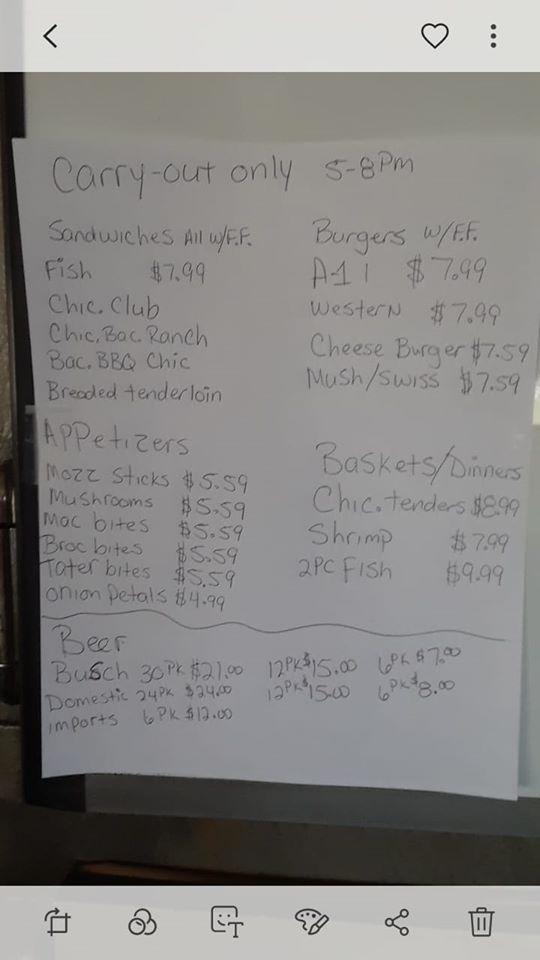 Carry-out only 5-8Pm
Sandwiches All w/F.F.
Fish $7.99
Chic. Club
Chic. Bac. Ranch
Bac. BBQ Chic
Breaded tenderloin
Burgers w/F.F.
A-1 1 $7.99
Western $7.99
Cheese Burger $7.59
Mush/Swiss $7.59
APPetizers
Mozz Sticks $5.59
Mushrooms $5.59
Mac bites $5.59
Broc bites $5.59
Tater bites $5.59
Onion Petals $4.99
Baskets/Dinners
Chic. tenders $8.99
Shrimp $7.99
2PC Fish $9.99
Beer
Busch 30PK $21.00 12PK $15.00 6PK $7.00
Domestic 24PK $24.00 12PK $15.00 6PK $8.00
imports 6PK $12.00